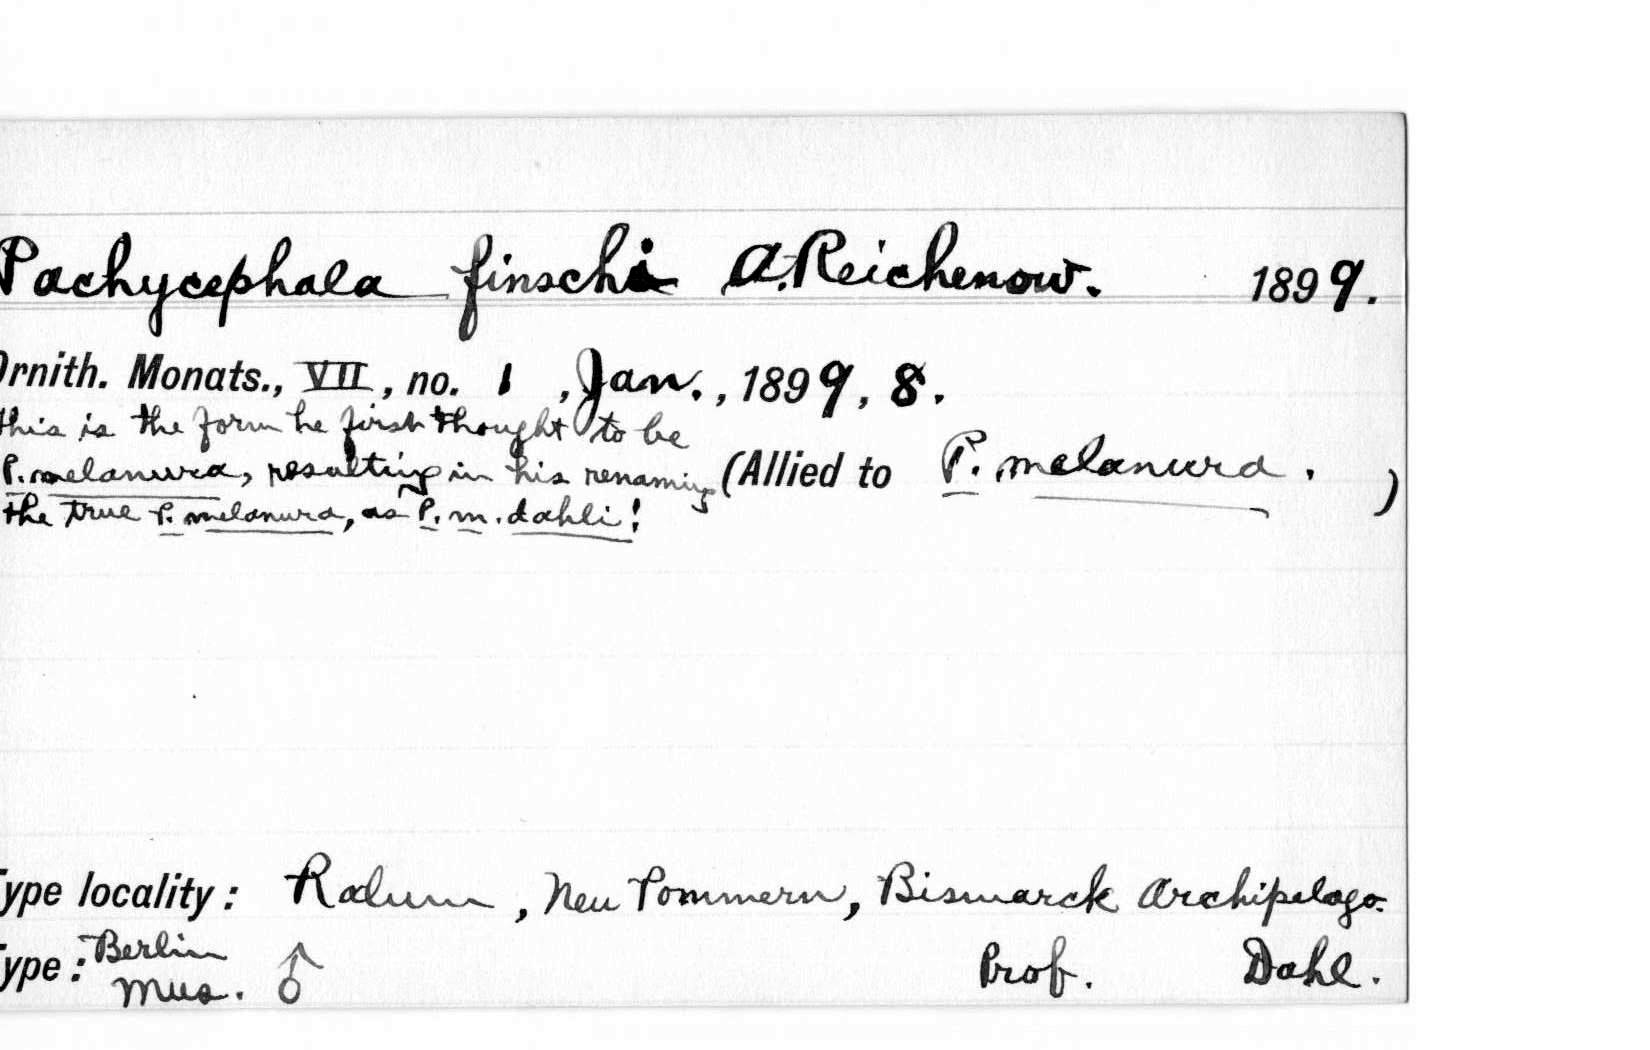 Pachycephala finschi A.Reichenow. 1899.
Ornith. Monats., VII, no. 1, Jan., 1899, 8.
This is the form he first thought to be
P. melanura, resulting in his renaming (Allied to P. melanura. )
the true P. melanura, as P. m. dahli!
Type locality: Ralum, Neu Pommern, Bismarck Archipelago.
Type: Berlin Mus. ♂ Prof. Dahl.